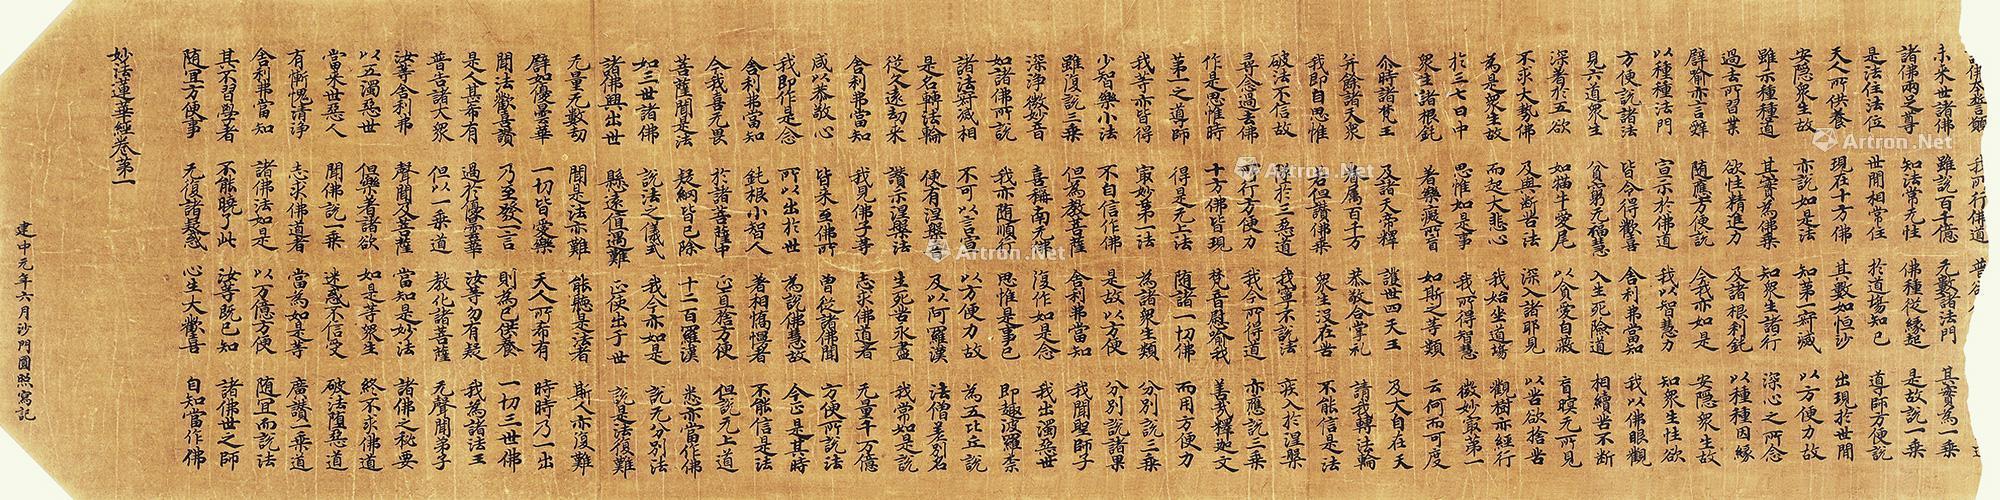 我所行佛道 普欲
未来世諸佛 雖說百千億 无數諸法門 其實為一乗
諸佛兩足尊 知法常无性 佛種從緣起 是故說一乗
是法住法位 世間相常住 於道場知已 導師方便說
天人所供養 現在十方佛 其數如恒沙 出現於世間
安隱衆生故 亦說如是法 知第一寂滅 以方便力故
雖示種種道 其實為佛乗 知衆生諸行 深心之所念
過去所習業 欲性精進力 及諸根利鈍 以種種因緣
譬喻亦言辭 随應方便說 今我亦如是 安隱衆生故
以種種法門 宣示於佛道 我以智慧力 知衆生性欲
方便說諸法 皆令得歡喜 舍利弗當知 我以佛眼觀
見六道衆生 貧窮无福慧 入生死險道 相續苦不斷
深著於五欲 如猫牛愛尾 以貪愛自蔽 盲瞑无所見
不求大勢佛 及與斷苦法 深入諸耶見 以苦欲捨苦
為是衆生故 而起大悲心 我始坐道場 觀樹亦經行
於三七日中 思惟如是事 我所得智慧 微妙寂第一
衆生諸根鈍 著樂癡所盲 如斯之等類 云何而可度
尒時諸梵王 及諸天帝釋 護世四天王 及大自在天
并餘諸天衆 眷属百千万 恭敬合掌礼 請我轉法輪
我即自思惟 若但讚佛乗 衆生没在苦 不能信是法
破法不信故 墜於三惡道 我寧不說法 疾入於涅槃
尋念過去佛 所行方便力 我今所得道 亦應說三乗
作是思惟時 十方佛皆現 梵音慰喻我 善哉釋迦文
第一之導師 得是无上法 随諸一切佛 而用方便力
我等亦皆得 寂妙第一法 為諸衆生類 分別說三乗
少智樂小法 不自信作佛 是故以方便 分別說諸果
雖復說三乗 但為教菩薩 舍利弗當知 我聞聖師子
深淨微妙音 喜稱南无佛 復作如是念 我出濁惡世
如諸佛所說 我亦随順行 思惟是事已 即趣波羅柰
諸法寂滅相 不可以言宣 以方便力故 為五比丘說
是名轉法輪 便有涅槃音 及以阿羅漢 法僧差別名
從久遠劫来 讚示涅槃法 生死苦永盡 我常如是說
舍利弗當知 我見佛子等 志求佛道者 无量千万億
咸以恭敬心 皆来至佛所 曾從諸佛聞 方便所說法
我即作是念 所以出於世 為說佛慧故 今正是其時
舍利弗當知 鈍根小智人 著相憍慢者 不能信是法
今我喜无畏 於諸菩薩中 正直捨方便 但說无上道
菩薩聞是法 疑網皆已除 千二百羅漢 悉亦當作佛
如三世諸佛 說法之儀式 我今亦如是 說无分別法
諸佛興出世 懸遠值遇難 正使出于世 說是法復難
无量无數劫 聞是法亦難 能聽是法者 斯人亦復難
譬如優曇華 一切皆愛樂 天人所希有 時時乃一出
聞法歡喜讚 乃至發一言 則為已供養 一切三世佛
是人甚希有 過於優曇華 汝等勿有疑 我為諸法王
普告諸大衆 但以一乗道 教化諸菩薩 无聲聞弟子
汝等舍利弗 聲聞及菩薩 當知是妙法 諸佛之秘要
以五濁惡世 但樂著諸欲 如是等衆生 終不求佛道
當来世惡人 聞佛說一乗 迷惑不信受 破法堕惡道
有慚愧清淨 志求佛道者 當為如是等 廣讚一乗道
舍利弗當知 諸佛法如是 以万億方便 随宜而說法
其不習學者 不能曉了此 汝等既已知 諸佛世之師
随宜方便事 无復諸疑惑 心生大歡喜 自知當作佛
妙法蓮華經卷第一
建中元年六月沙門圓照寫記
Artron.Net
Artron.Net
Artron.Net
Artron.Net
Artron.Net
Artron.Net